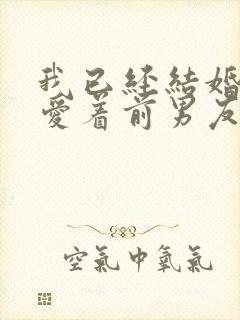 我已经結婚
愛着前男友
空氣中氧氣